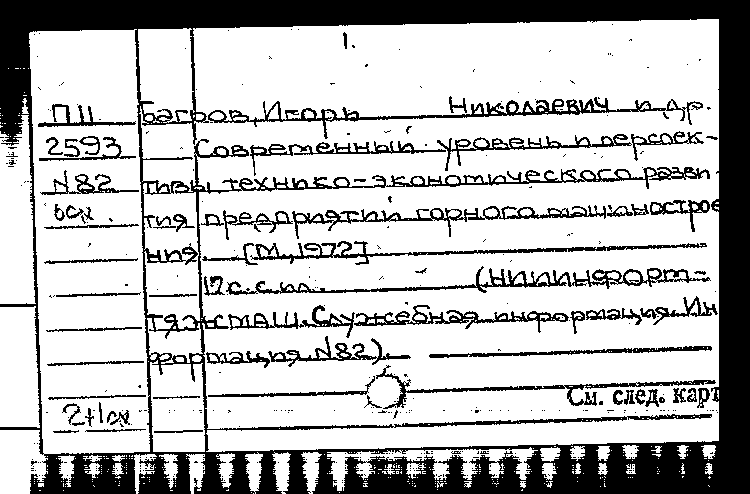 1.
П11 Багров, Игорь Николаевич и др.
2593 Современный уровень и перспек-
N82 тивы технико-экономического разви-
осн. тия предприятий горного машинострое
ния. [М., 1972]
17 с. с ил. (НИИинформ-
тяжмаш. Служебная информация. Ин
формация. N82).
См. след. карт
2+1